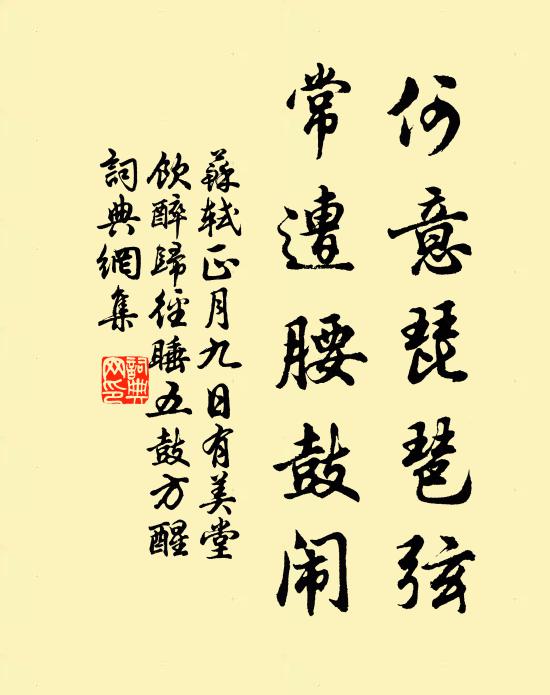 何意琵琶弦
常遭腰鼓闹
蘇軾正月九日有美堂
飲醉歸徑睡五鼓方醒
詞典網集
詞典
网印